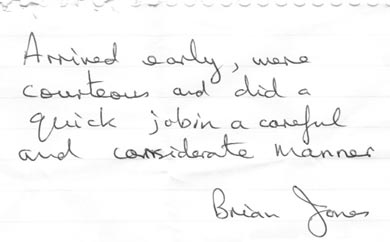 Arrived early, were
courteous and did a
quick jobin a careful
and considerate manner
Brian Jones